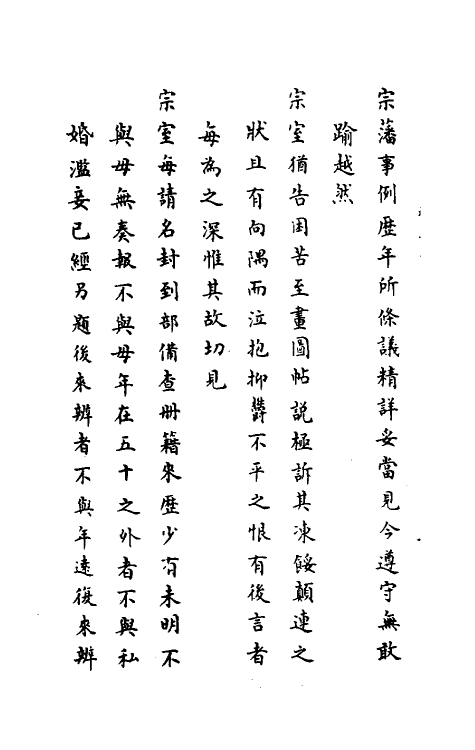 宗藩事例歷年所條議精詳妥當見今遵守無敢
踰越然
宗室猶告困苦至畫圖帖說極訴其凍餒顛連之
狀且有向隅而泣抱抑鬱不平之恨有後言者
每為之深惟其故切見
宗室每請名封到部備查冊籍來歷少有未明不
與母無奏報不與母年在五十之外者不與私
婚濫妾已經另題後來辨者不與年遠復來辨